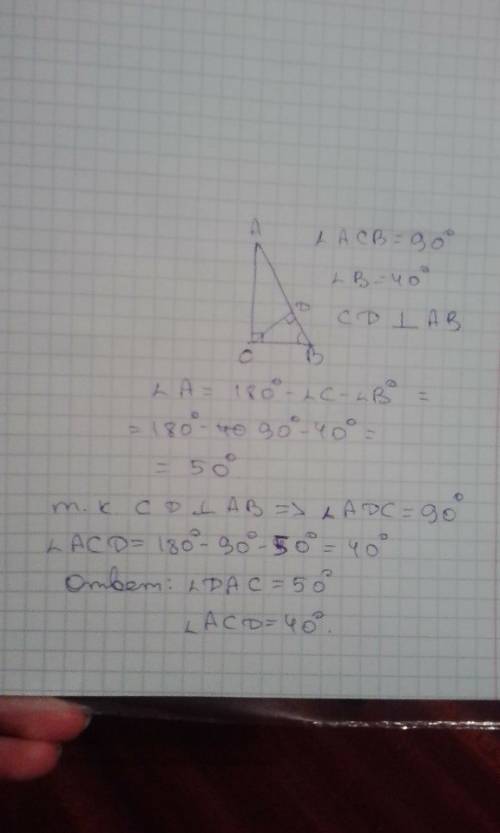 A
∠ACB=90°
∠B=40°
D
CD ⊥ AB
C
B
∠A = 180°-∠C-∠B° =
=180°-40 90°-40°=
= 50°
т.к CD ⊥ AB => ∠ADC=90°
∠ACD=180°-90°-50°=40°
Ответ: ∠DAC=50°
∠ACD=40°.